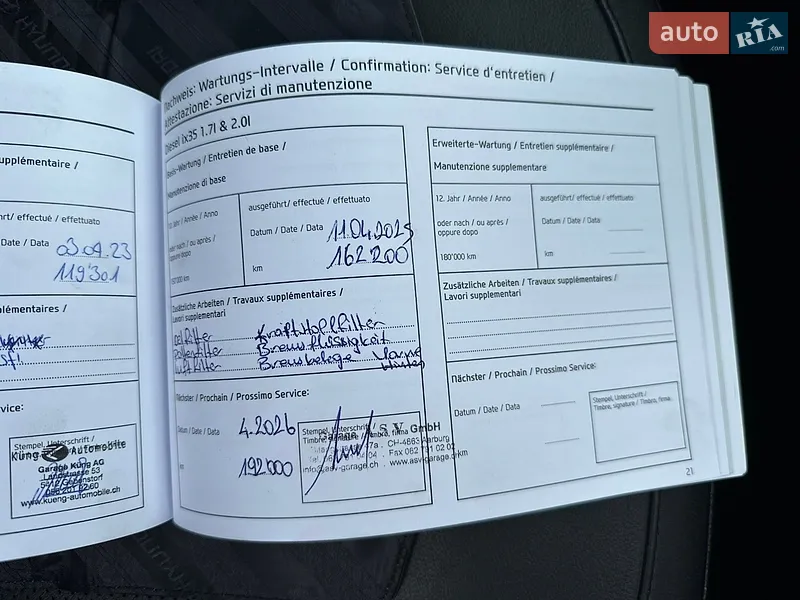 auto RIA.com
Nachweis: Wartungs-Intervalle / Confirmation: Service d'entretien /
Attestazione: Servizi di manutenzione
Diesel ix35 1.7l & 2.0l
supplémentaire /
effectué / effettuato
Date / Data 03.04.23
119'301
supplémentaires /
Service:
Stempel, Unterschrift /
Küng Automobile
Garage Küng AG
Landstrasse 53
5412 Gebenstorf
056 201 92 60
www.kueng-automobile.ch
Basis-Wartung / Entretien de base /
Manutenzione di base
10. Jahr / Année / Anno
oder nach / ou après /
oppure dopo
km
ausgeführt/ effectué / effettuato
Datum / Date / Data 11.04.2025
km 162'200
Zusätzliche Arbeiten / Travaux supplémentaires /
Lavori supplementari
Oelfilter Kraftstoffilter
Pollenfilter Bremsflüssigkeit
Luftfilter Bremsbelege Vorne
Hinten
Nächster / Prochain / Prossimo Service:
Datum / Date / Data 4.2026
km 192'000
Stempel, Unterschrift /
Timbre, signature / Timbro, firma
Garage A.S.V. GmbH
47a, CH-4663 Aarburg
04 . Fax 062 791 02 02
info@asv-garage.ch . www.asvgarage.ch
Erweiterte-Wartung / Entretien supplémentaire /
Manutenzione supplementare
12. Jahr / Année / Anno
oder nach / ou après /
oppure dopo
180'000 km
ausgeführt/ effectué / effettuato
Datum / Date / Data
km
Zusätzliche Arbeiten / Travaux supplémentaires /
Lavori supplementari
Nächster / Prochain / Prossimo Service:
Datum / Date / Data
km
Stempel, Unterschrift /
Timbre, signature / Timbro, firma
21